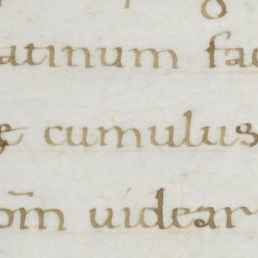 atinum fac
cumulus
om̅ uidear